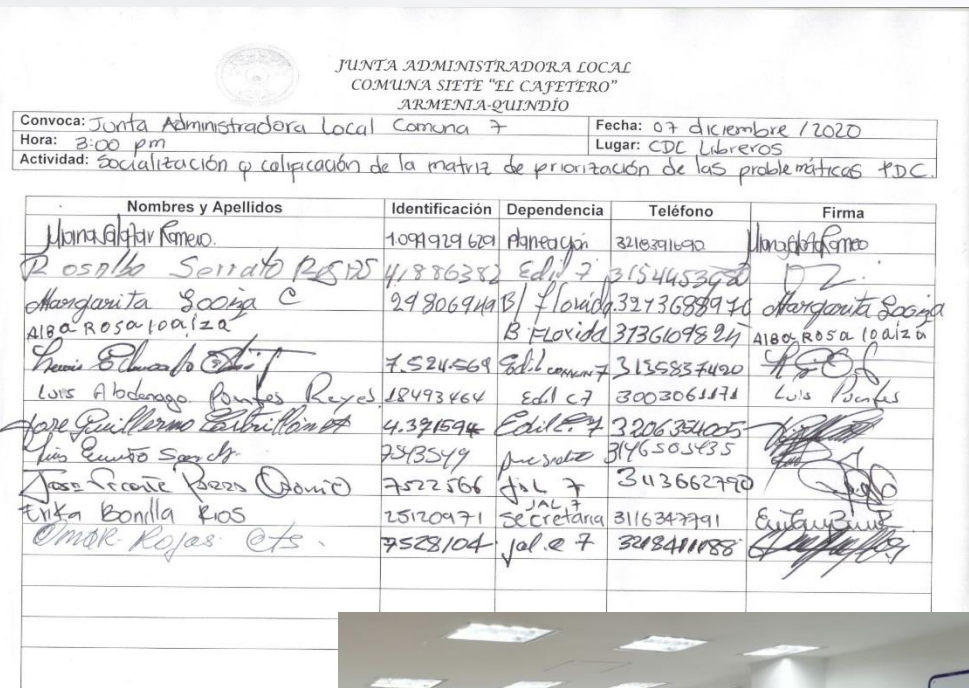 JUNTA ADMINISTRADORA LOCAL
COMUNA SIETE "EL CAFETERO"
ARMENIA-QUINDÍO
Convoca: Junta Administradora Local Comuna 7 Fecha: 07 diciembre / 2020
Hora: 3:00 pm Lugar: CDC Libreros
Actividad: Socialización y calificación de la matriz de priorización de las problemáticas PDC.
Nombres y Apellidos Identificación Dependencia Teléfono Firma
Romero. 1091929629 Planeación 3218391690
Rosalbo Serrato 41886382 Edil 7
Margarita Loaiza C 24806949 B/ Florida 3273688976 Margarita Loaiza
Alba Rosa loaiza B Florida 3136109824 Alba Rosa loaiza
Luis Eduardo 7.524.569 Edil comuna 7 3135837420
Luis Abdenago Puentes Reyes 18493464 Edil C7 3003061171 Luis Puentes
Jose Guillermo Castrillon 4.371594 Edil C. 7 3206354005
Luis 7543549 3146505435
Jose 7522566 JAL 7 3113662790
Erika Bonilla Rios 25120971 JAL 7 secretaria 3116347791
Omar Rojas 7528104 jal.c 7 3218411188